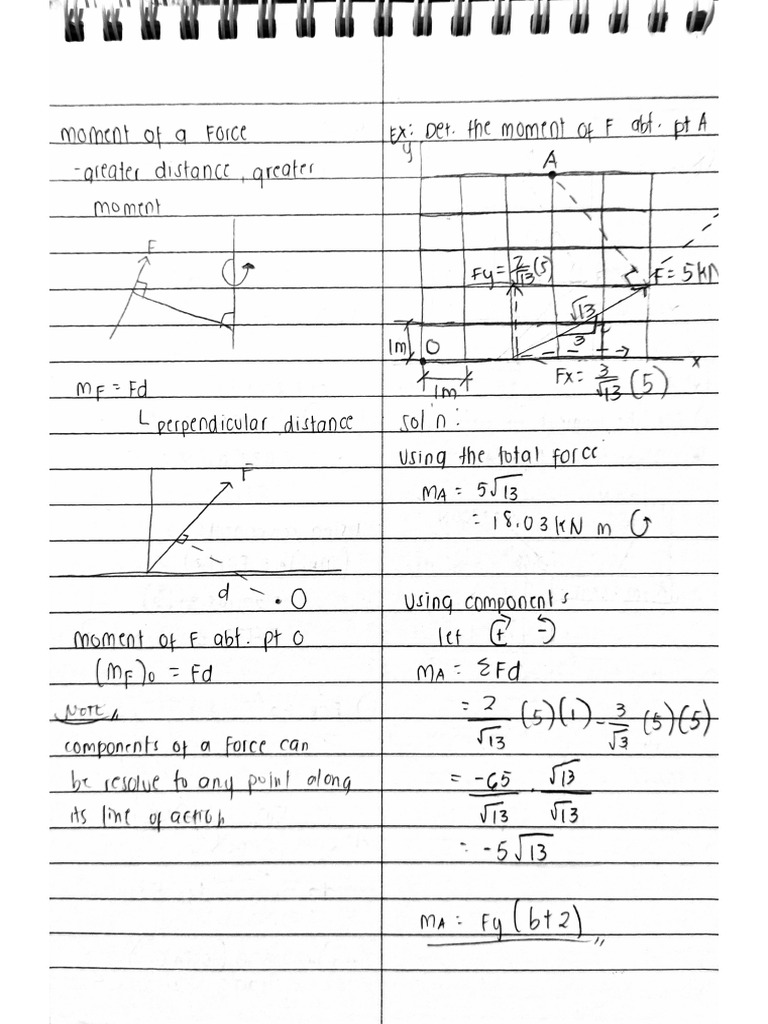 Moment of a Force
-greater distance, greater
moment
F
MF = Fd
perpendicular distance
F
d
.O
Moment of F abt. pt O
(MF)o = Fd
Note,,
components of a force can
be resolve to any point along
its line of action
Ex: Det. the moment of F abt. pt A
y
A
Fy = 2/√13 (5)
F = 5 kN
√13
3
1m
O
x
1m
Fx = 3/√13 (5)
sol'n:
Using the total force
MA = 5√13
= 18.03 kN m ↺
Using components
let (+ -)
MA = ΣFd
= 2/√13 (5)(1) - 3/√3 (5)(5)
= -65/√13 · √13/√13
= -5√13
MA = Fy (b+2)